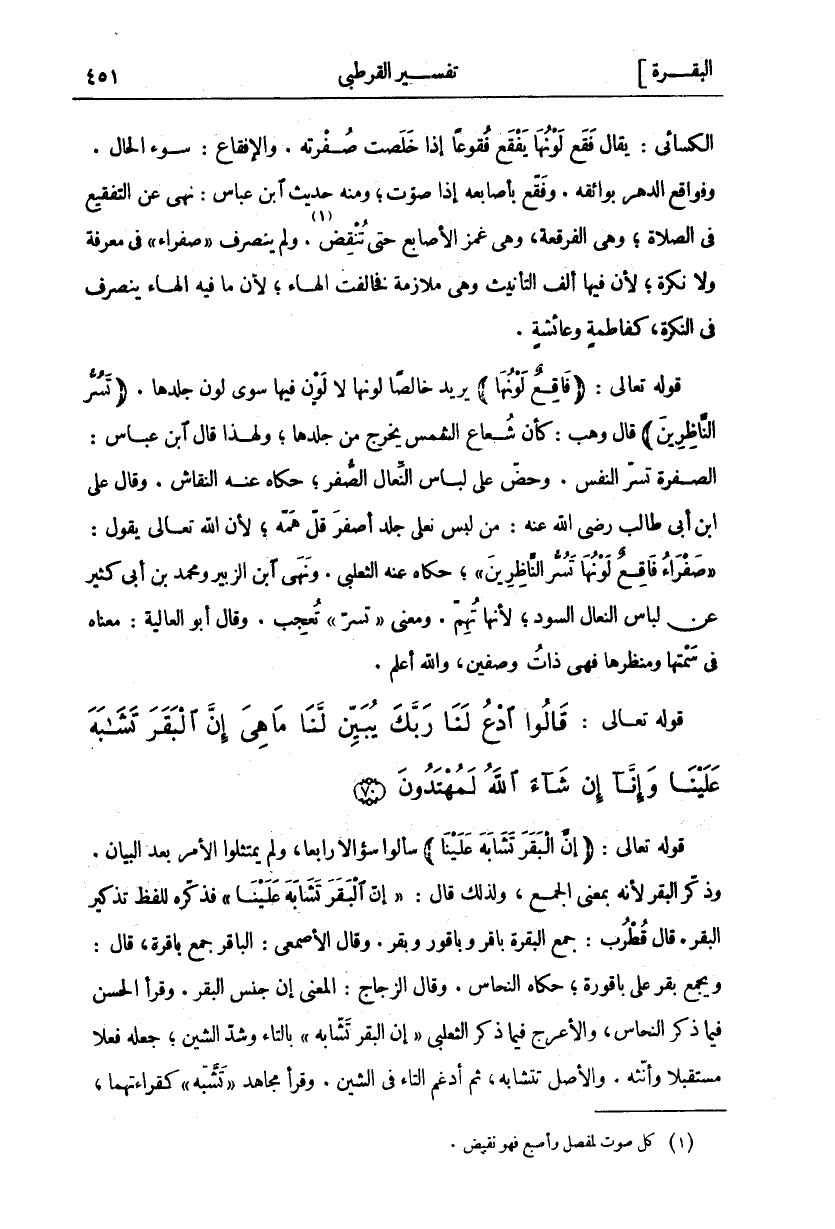 البقـــرة ] تفســـير القرطبى ٤٥١
الكسائى : يقال فَقَع لَوْنُها يَفْقَع فُقوعًا إذا خَلَصت صُـفْرته . والإفقاع : ســوء الحال .
وفواقع الدهر بوائقه . وفَقّع بأصابعه إذا صوّت ؛ ومنه حديث آبن عباس : نهى عن التفقيع
فى الصلاة ؛ وهى الفرقعة، وهى غمز الأصابع حتى تُنْقِض (١) . ولم ينصرف «صفراء» فى معرفة
ولا نكرة ؛ لأن فيها ألف التأنيث وهى ملازمة فخالفت الهـاء ؛ لأن ما فيه الهـاء ينصرف
فى النكرة، كفاطمةٍ وعائشةٍ .
قوله تعالى : ﴿ فَاقِعٌ لَوْنُهَا ﴾ يريد خالصًا لونها لا لَوْن فيها سوى لون جلدها . ﴿ تَسُرُّ
النَّاظِرِينَ ﴾ قال وهب : كأن شُـعاع الشمس يخرج من جلدها ؛ ولهـذا قال آبن عبـاس :
الصـفرة تسرّ النفس . وحضّ على لبـاس النِّعال الصُّفر ؛ حكاه عنـه النقاش . وقال على
ابن أبى طالب رضى الله عنه : من لبس نعلى جلد أصفرَ قلّ همّه ؛ لأن الله تعـالى يقول :
«صَفْرَاءُ فَاقِـعٌ لَوْنُهَا تَسُرُّ النَّاظِرِينَ» ؛ حكاه عنه الثعلبى . ونَهَى آبن الزبير ومحمد بن أبى كثير
عن لباس النعال السود ؛ لأنها تُهِمّ . ومعنى «تسرّ» تُعجِب . وقال أبو العالية : معناه
فى سَمْتها ومنظرها فهى ذاتُ وصفين، والله أعلم .
قوله تعـالى : قَالُوا ٱدْعُ لَنَا رَبَّكَ يُبَيِّن لَّنَا مَاهِىَ إِنَّ ٱلْبَقَرَ تَشَـٰبَهَ
عَلَيْنَـا وَإِنَّـآ إِن شَآءَ ٱللَّهُ لَمُهْتَدُونَ ﴿٧٠﴾
قوله تعالى : ﴿ إِنَّ الْبَقَرَ تَشَابَهَ عَلَيْنَا ﴾ سألوا سؤالا رابعا، ولم يمتثلوا الأمر بعد البيان .
وذكّر البقر لأنه بمعنى الجمـع ، ولذلك قال : « إنّ ٱلْبَقَرَ تَشَابَهَ عَلَيْنَـا » فذكّره للفظ تذكير
البقر . قال قُطْرُب : جمع البقرة باقر وباقور وبقر . وقال الأصمعى : الباقر جمع باقرة، قال :
ويجمع بقر على باقورة ؛ حكاه النحاس . وقال الزجاج : المعنى إن جنس البقر . وقرأ الحسن
فيما ذكر النحاس، والأعرج فيما ذكر الثعلبى « إن البقر تَشّابه » بالتاء وشدّ الشين ؛ جعله فعلا
مستقبلا وأنّثه . والأصل تتشابه، ثم أدغم التاء فى الشين . وقرأ مجاهد «تَشَّبّه» كقراءتهما ،
(١) كل صوت لمفصل وأصبع فهو نقيض .